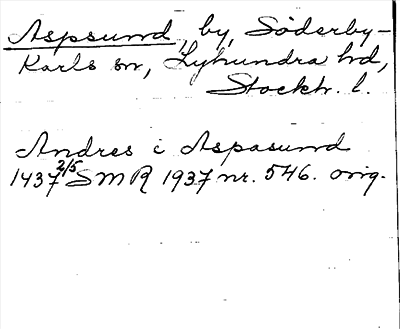 Aspsund, by, Söderby-
Karls sn, Lyhundra hd,
Stockh. l.
Andres i Aspasund
1437 2/5 SMR 1937 nr. 546. orig.